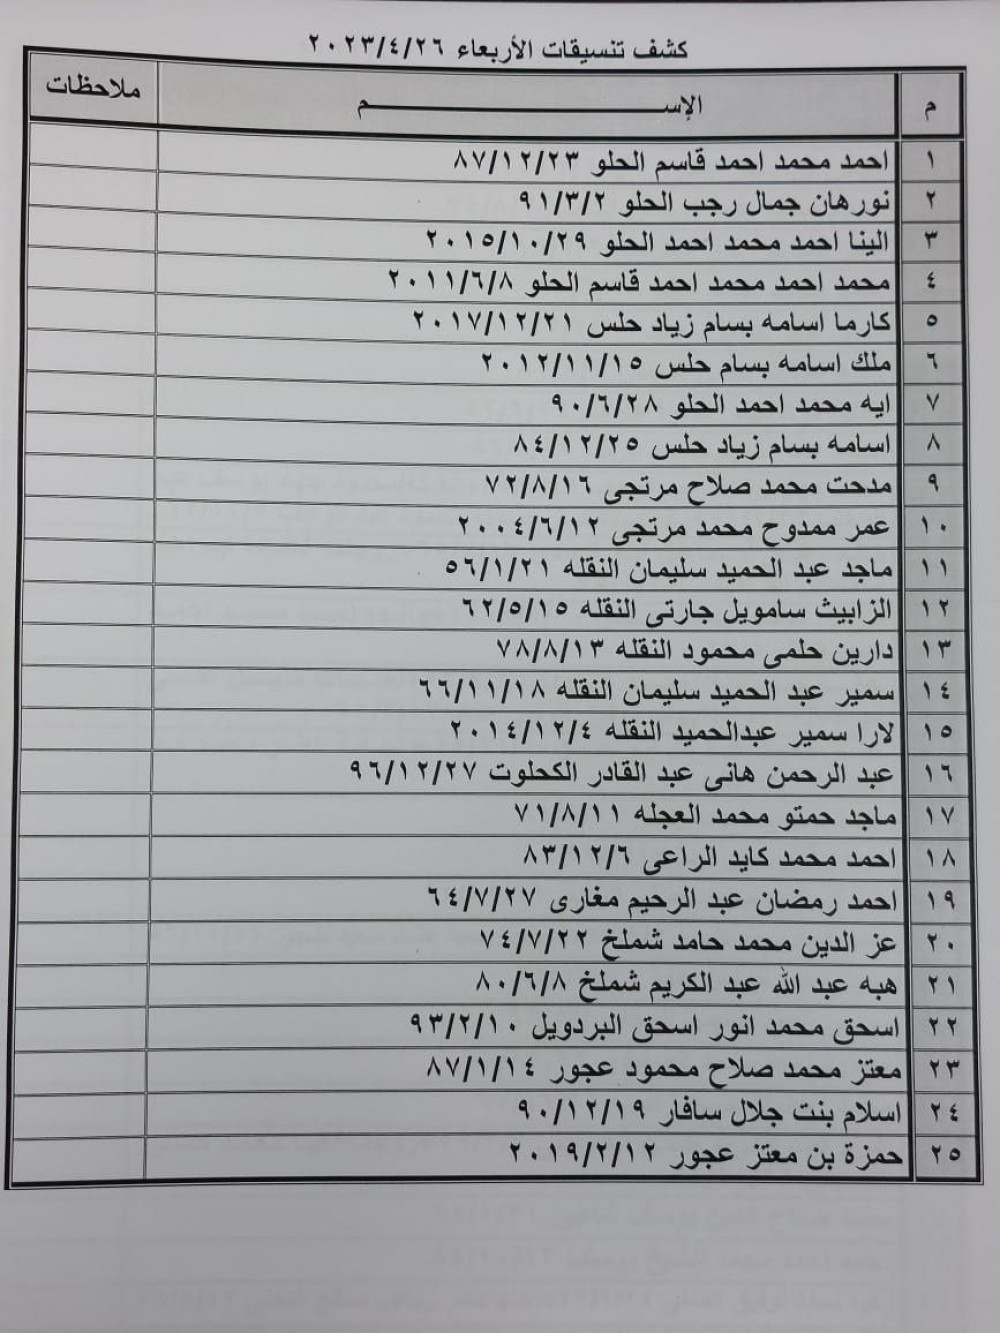 كشف تنسيقات الأربعاء ٢٠٢٣/٤/٢٦
م الإســــــــــــــــــــم ملاحظات
١ احمد محمد احمد قاسم الحلو ٨٧/١٢/٢٣
٢ نورهان جمال رجب الحلو ٩١/٣/٢
٣ الينا احمد محمد احمد الحلو ٢٠١٥/١٠/٢٩
٤ محمد احمد محمد احمد قاسم الحلو ٢٠١١/٦/٨
٥ كارما اسامه بسام زياد حلس ٢٠١٧/١٢/٢١
٦ ملك اسامه بسام حلس ٢٠١٢/١١/١٥
٧ ايه محمد احمد الحلو ٩٠/٦/٢٨
٨ اسامه بسام زياد حلس ٨٤/١٢/٢٥
٩ مدحت محمد صلاح مرتجى ٧٢/٨/١٦
١٠ عمر ممدوح محمد مرتجى ٢٠٠٤/٦/١٢
١١ ماجد عبد الحميد سليمان النقله ٥٦/١/٢١
١٢ الزابيث سامويل جارتى النقله ٦٢/٥/١٥
١٣ دارين حلمى محمود النقله ٧٨/٨/١٣
١٤ سمير عبد الحميد سليمان النقله ٦٦/١١/١٨
١٥ لارا سمير عبدالحميد النقله ٢٠١٤/١٢/٤
١٦ عبد الرحمن هانى عبد القادر الكحلوت ٩٦/١٢/٢٧
١٧ ماجد حمتو محمد العجله ٧١/٨/١١
١٨ احمد محمد كايد الراعى ٨٣/١٢/٦
١٩ احمد رمضان عبد الرحيم مغارى ٦٤/٧/٢٧
٢٠ عز الدين محمد حامد شملخ ٧٤/٧/٢٢
٢١ هبه عبد الله عبد الكريم شملخ ٨٠/٦/٨
٢٢ اسحق محمد انور اسحق البردويل ٩٣/٢/١٠
٢٣ معتز محمد صلاح محمود عجور ٨٧/١/١٤
٢٤ اسلام بنت جلال سافار ٩٠/١٢/١٩
٢٥ حمزة بن معتز عجور ٢٠١٩/٢/١٢